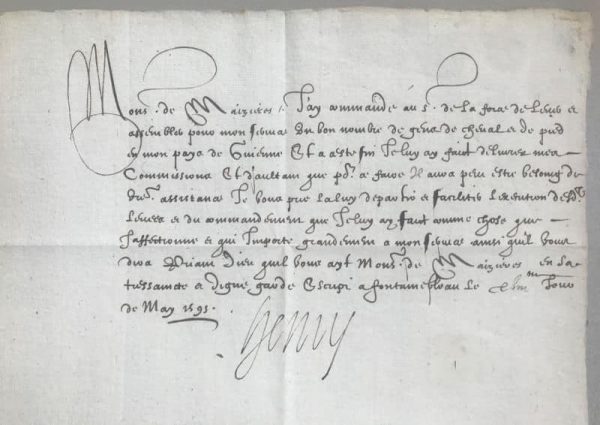 Mons.r de Maizieres J'ay commandé au S.r de la force de lever et
assembler pour mon service un bon nombre de gens de cheval et de pied
en mon pays de Guienne Et a ceste fin Je luy ay faict delivrer mes
Commissions Et d'aultant que p.r ce faire Il aura peu estre besoing de
v.re assistance Je vous prie la luy departir et faciliter l'execution desd.
levees et du commandement que Je luy ay faict comme chose que
J'affectionne et qui Importe grandement a mon service ainsi quil vous
dira Priant Dieu quil vous ayt Mons.r de Maizieres en sa
tressaincte et digne garde Escript a fontainebleau le Jour
de May 1595.
Henry